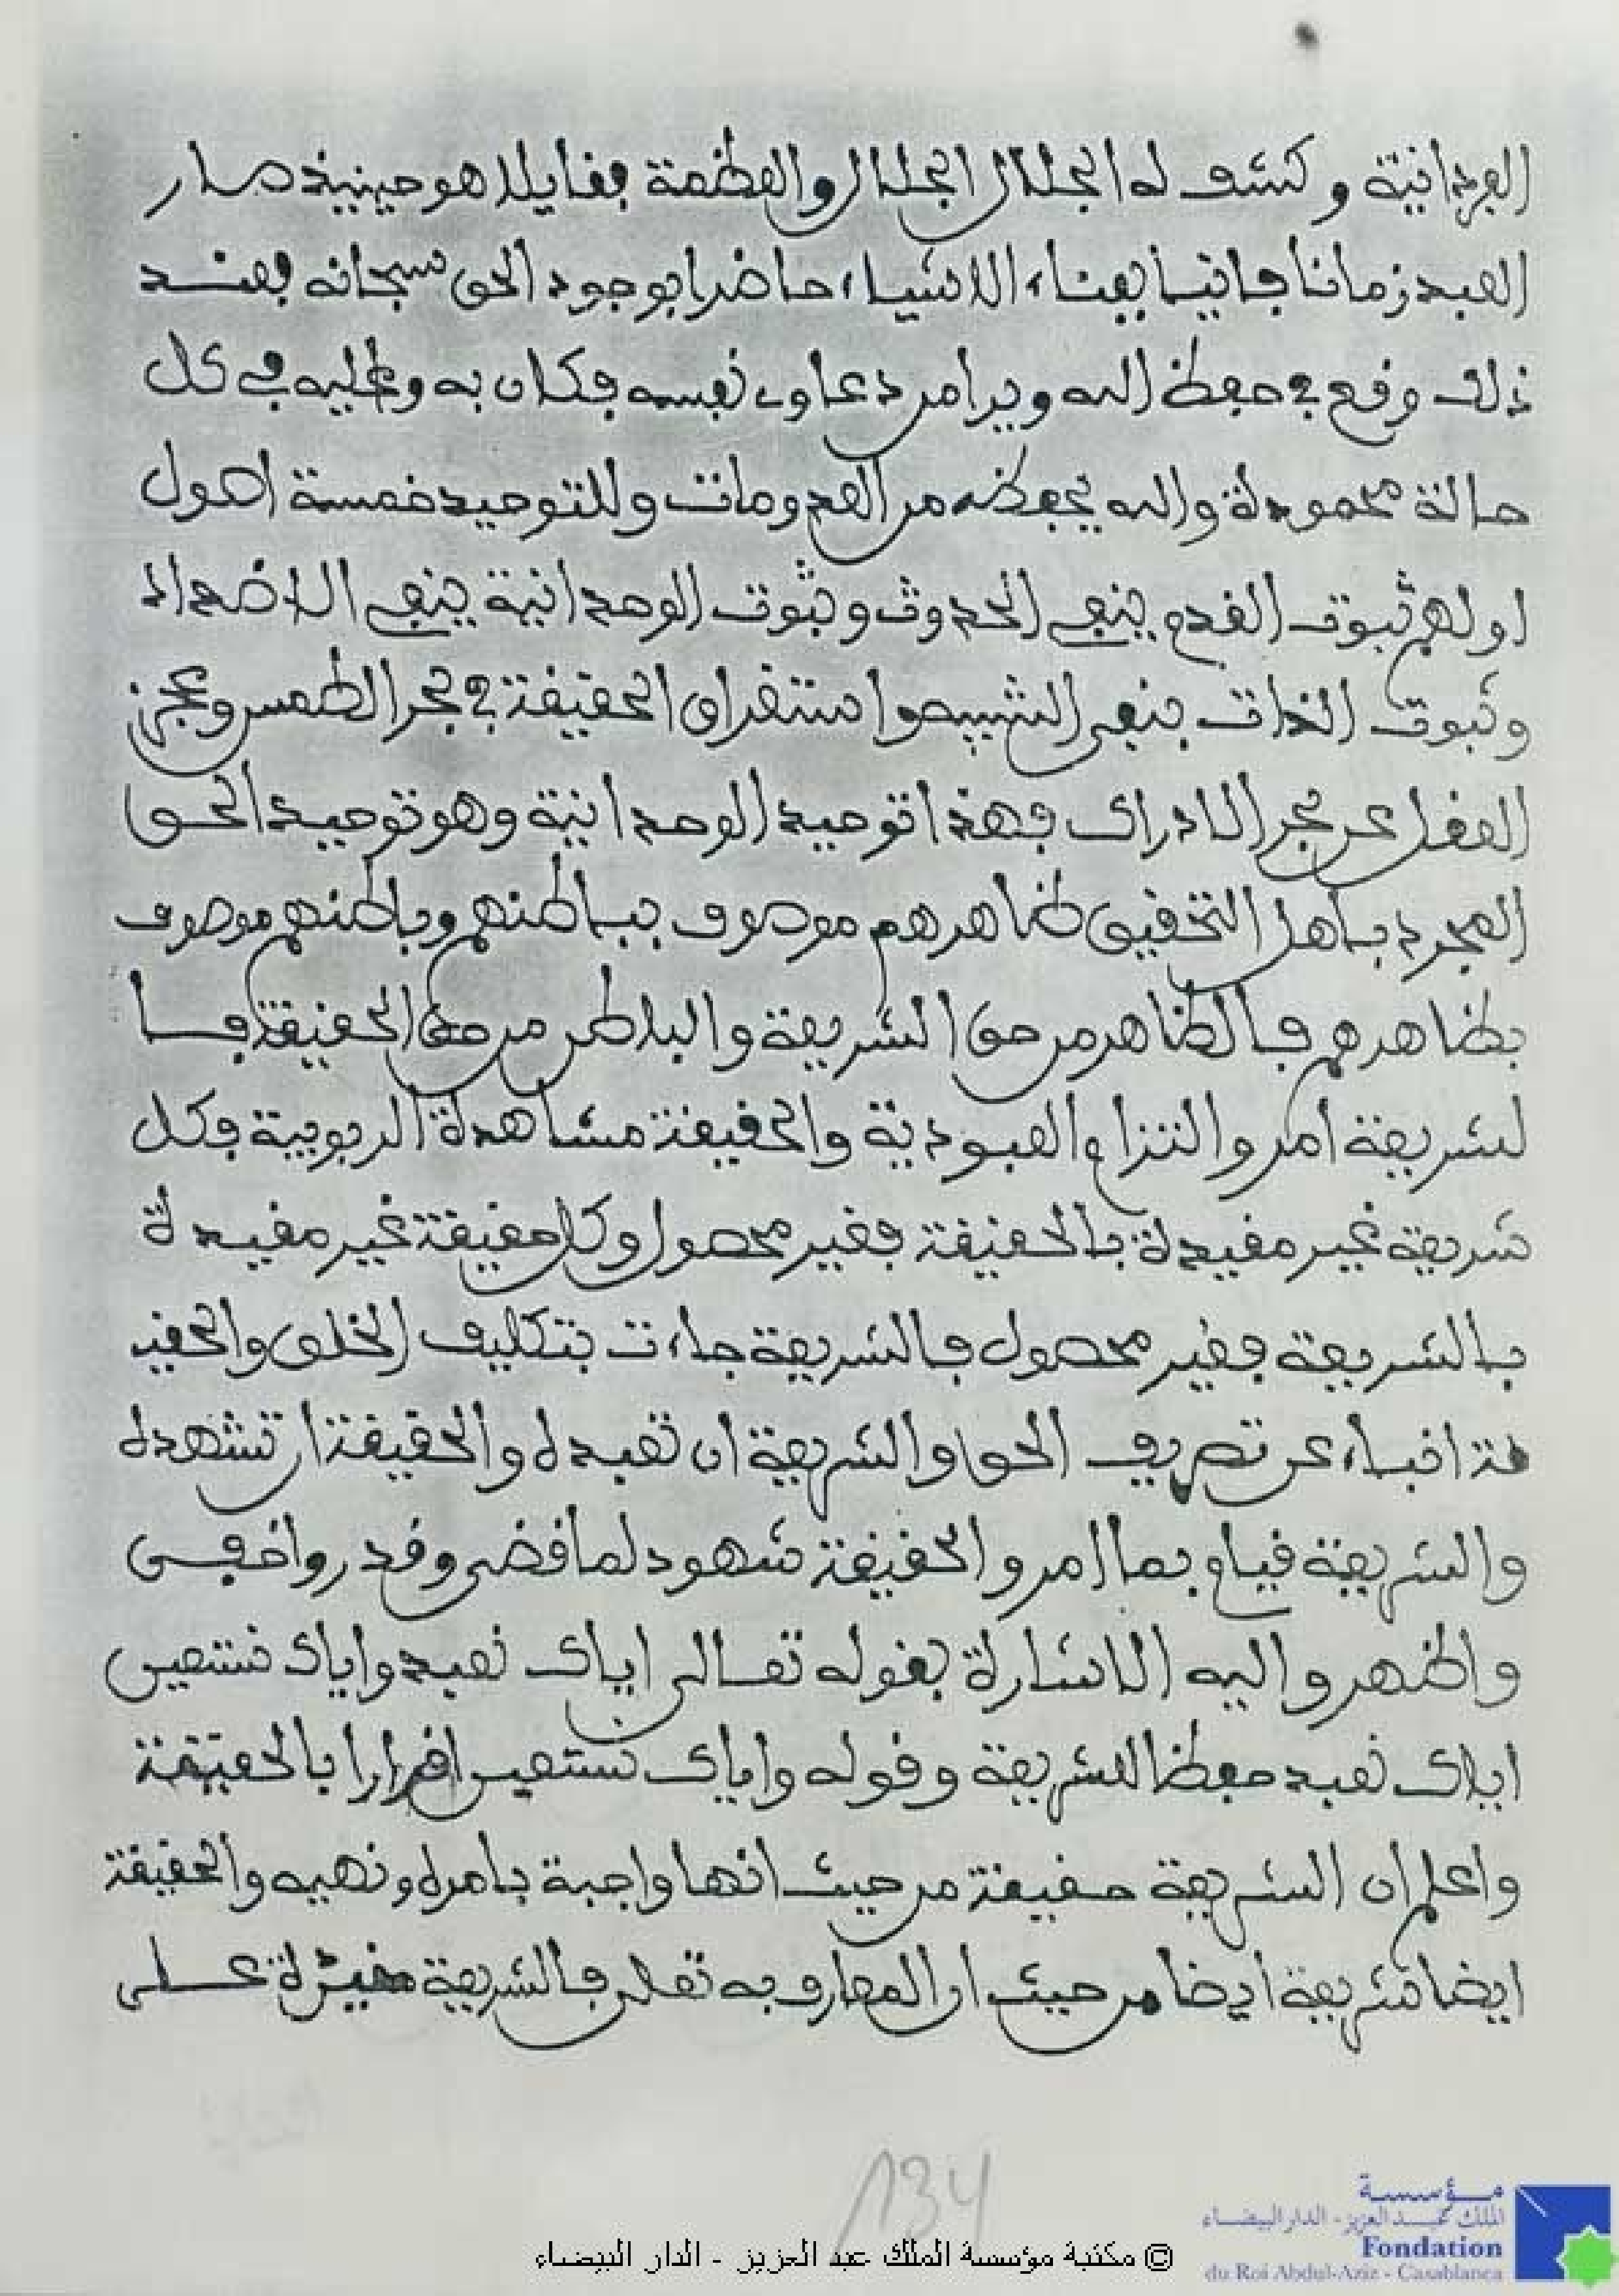 الفردانية وكشف له الجلال الجلال والعظمة بقا بلا هو حينيذ صار
العبد زمانا فانيا بفناء الاشياء حاضرا بوجود الحق سبحانه بعند
ذلك وقع في حفظ الله وبرا من دعاوى نفسه فكان به وعليه في كل
حالة محمودة والله يحفظه من المعدومات وللتوحيد خمسة اصول
اولهم ثبوت القدم ينفي الحدوث وثبوت الوحدانية ينفي الاضداد
وثبوت الذات بنفي التشبيه استغراق الحقيقة في بحر الطمس وعجز
العقل عن بحر الادراك فهذا توحيد الوحدانية وهو توحيد الحق
المجرد باهل التحقيق ظاهرهم موصوف بباطنهم وباطنهم موصوف
بظاهرهم فالظاهر من حق الشريعة والباطن من حق الحقيقة فا
لشريعة امر والتزام العبودية والحقيقة مشاهدة الربوبية فكل
شريعة غير مقيدة بالحقيقة فغير محصول وكل حقيقة غير مقيدة
بالشريعة فغير محصول فالشريعة جاءت بتكليف الخلق والحقيـ
ـقة انباء عن تصريف الحق والشريعة ان تعبده والحقيقة ان تشهده
والشريعة قيام بما امر والحقيقة شهود لما قضى وقدر واخفى
واظهر واليه الاشارة بقوله تعالى اياك نعبد واياك نستعين
اياك نعبد حفظا للشريعة وقوله واياك نستعين اقرارا بالحقيقة
واعلم ان الشريعة حقيقة من حيث انها واجبة بامره ونهيه والحقيقة
ايضا شريعة ايضا من حيث ان المعارف به تعلى فالشريعة على
134
© مكتبة مؤسسة الملك عبد العزيز - الدار البيضاء
مؤسسة
الملك عبد العزيز - الدار البيضاء
Fondation
du Roi Abdul-Aziz - Casablanca